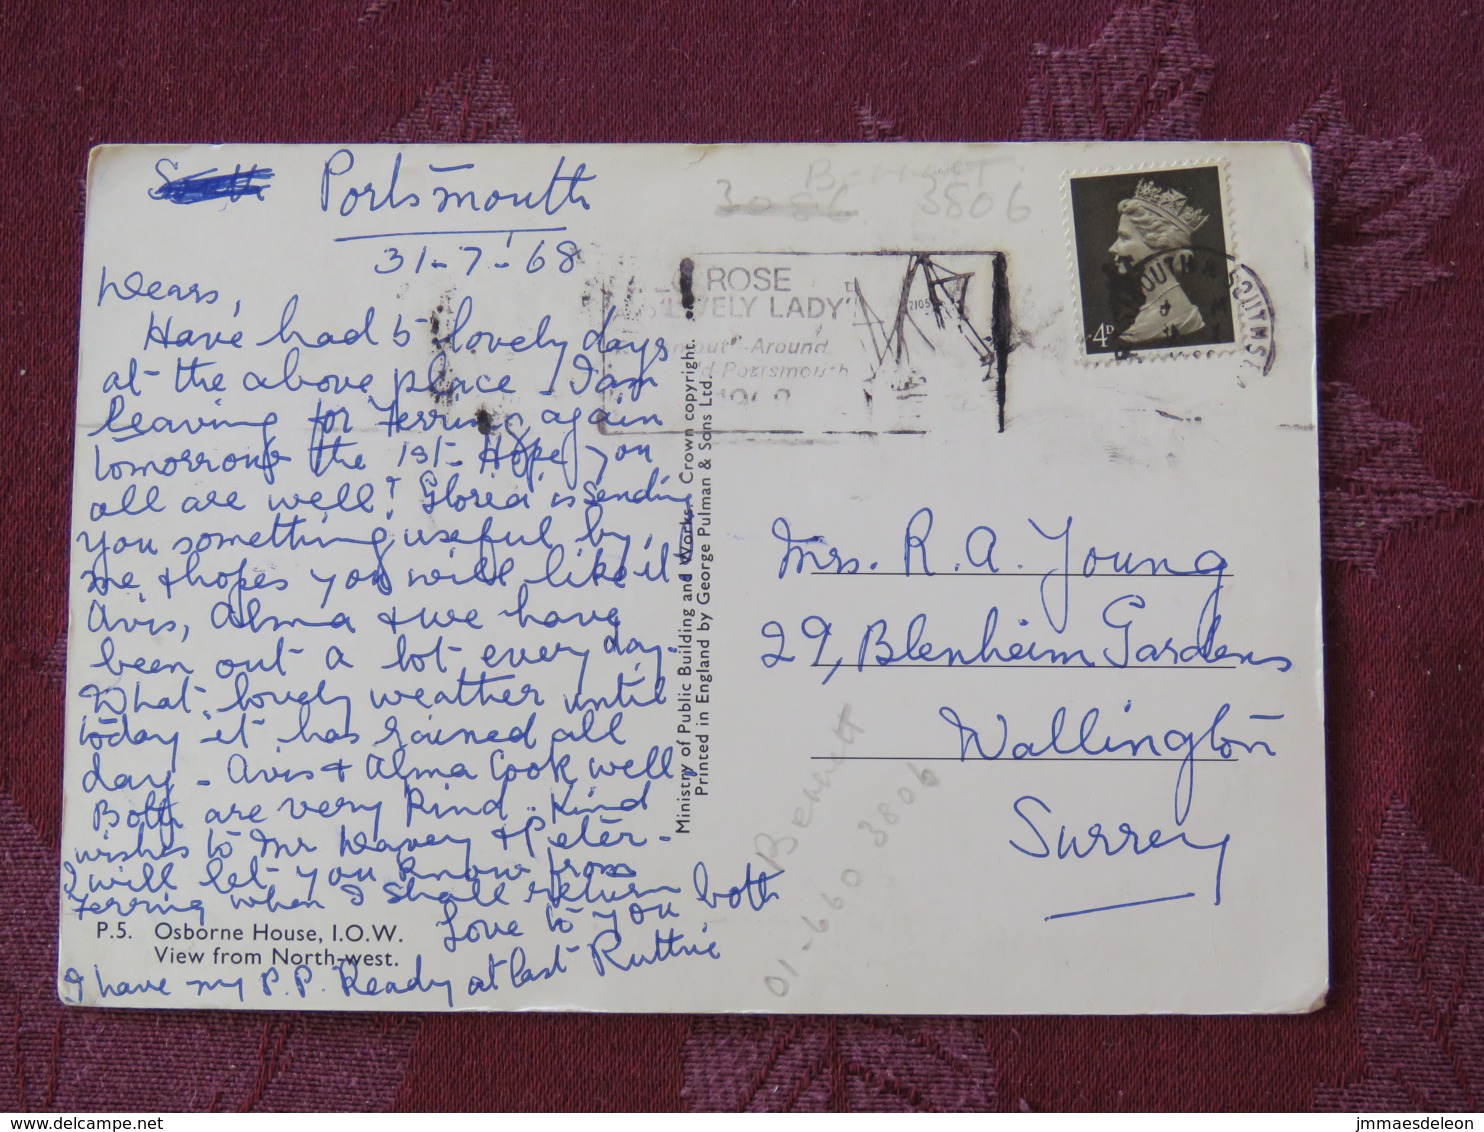 Portsmouth
31-7-68
Dears,
Have had 5 lovely days
at the above place. I am
leaving for Ferring again
tomorrow the 1st. Hope you
all are well? Gloria is sending
you something useful by
me & hopes you will like it
Avis, Alma & we have
been out a lot every day.
What lovely weather until
today it has rained all
day - Avis & Alma Cook well.
Both are very kind. Kind
wishes to Mr Davey & Peter -
I will let you know from
Ferring when I shall return
Love to you both
Ruttie
I have my P.P. Ready at last
P.5. Osborne House, I.O.W.
View from North-west.
Ministry of Public Building and Works. Crown copyright.
Printed in England by George Pulman & Sons Ltd.
3086 3806
Bennett
ROSE
LOVELY LADY'
-Around
Portsmouth
1968
4D
Mrs. R. A. Young
29, Blenheim Gardens
Wallington
Surrey
Bennett
01-660 3806
jmmaesdeleon